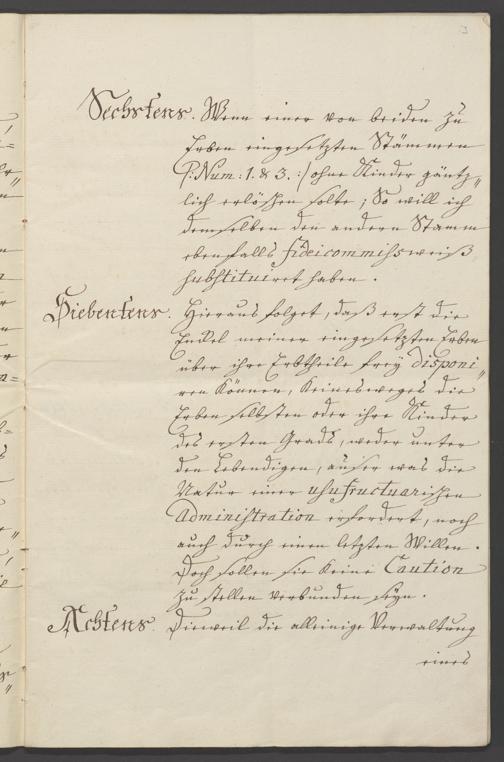 3
Sechstens. Wenn einer von beiden zu
Erben eingesetzten Stämmen
/:Num: 1. & 3. :/ ohne Kinder gäntz„
lich erlöschen solte; So will ich
demselben den andern Stamm
ebenfalls fideicommissweiß
substituiret haben.
Siebentens. Hieraus folget, daß erst die
Enckel meiner eingesetzten Erben
über ihre Erbtheile frey disponi„
ren können, keinesweges die
Erben selbsten oder ihre Kinder
des ersten Grads, weder unter
den Lebendigen, auser was die
Natur einer usufructuarischen
Administration erfordert, noch
auch durch einen letzten Willen.
Doch sollen sie keine Caution
zu stellen verbunden seyn.
Achtens. Dieweil die alleinige Verwaltung
eines